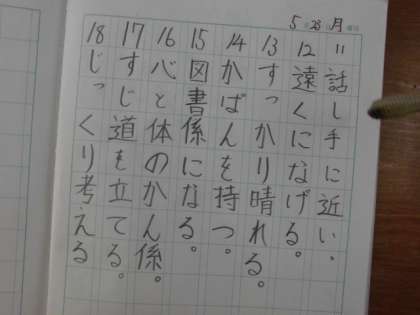 5月23日月曜日
11話し手に近い。
12遠くになげる。
13すっかり晴れる。
14かばんを持つ。
15図書係になる。
16心と体のかん係。
17すじ道を立てる。
18じっくり考える